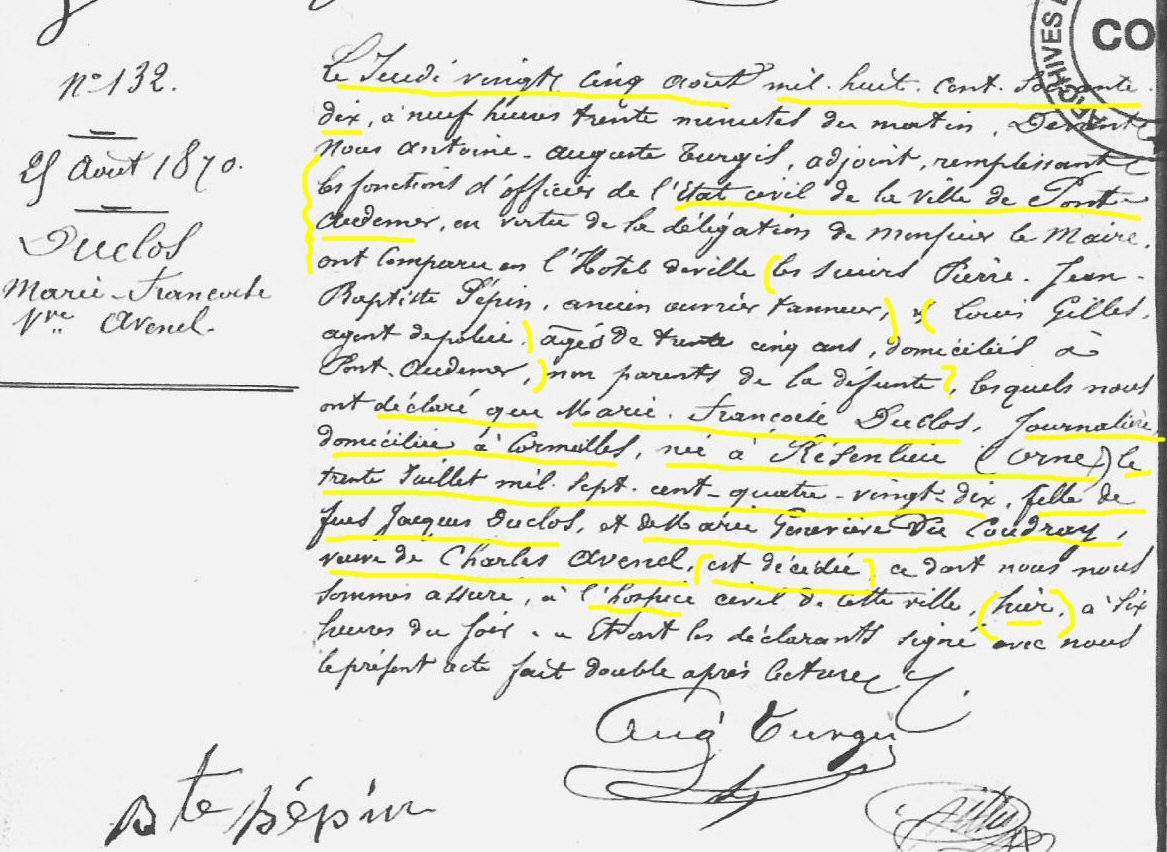 N° 132.
25 Août 1870.
Duclos
Marie-Françoise
Vve Avenel.
ARCHIVES
CO
Le Jeudi vingt cinq août mil. huit. cent. soixante.
dix, à neuf heures trente minutes du matin, Devant
Nous Antoine-Auguste Turgis, adjoint, remplissant
les fonctions d'officier de l'Etat civil de la Ville de Pont-
Audemer, en vertu de la délégation de monsieur le Maire,
ont comparu en l'Hotel deville les sieurs Pierre-Jean-
Baptiste Pépin, ancien ouvrier tanneur, & Louis Gilles,
agent depolice, agés de trente cinq ans, domiciliés à
Pont-Audemer, non parents de la défunte, lesquels nous
ont déclaré que Marie-Françoise Duclos, Journalière,
domiciliée à Cormeilles, née à Résenlieu (Orne) le
trente Juillet mil. sept. cent-quatre-vingt-dix, fille de
feus Jacques Duclos, et de Marie Geneviève Du Coudray,
veuve de Charles Avenel, est décédée, ce dont nous nous
sommes assuré, à l'hospice civil de cette ville, hier, à six
heures du soir. Et ont les déclarants signé avec nous
le présent acte fait double après lecture
Aug Turgis
Bte pépin